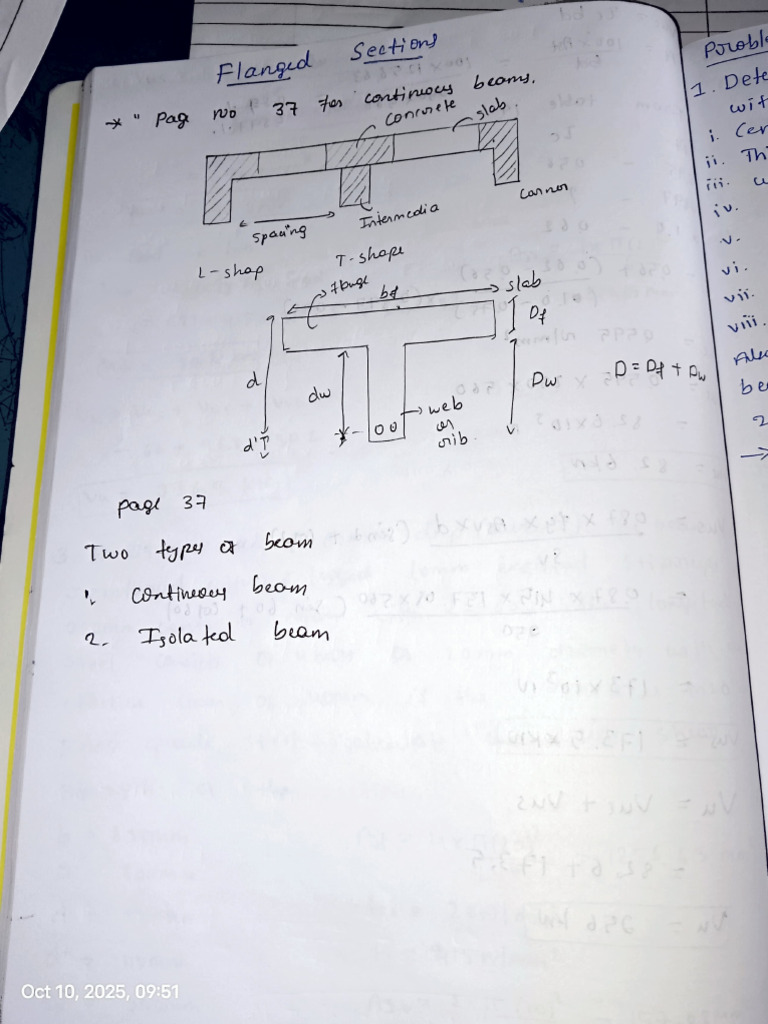 Flanged Sections
→* " Page no " 37 for continuous beams.
concrete
slab.
Spacing
Intermedia
Cannor
L-shap
T-shape
flange
bf
slab
Df
d
dw
Dw
D = Df + Dw
web
or
rib.
d'
page 37
Two types of beam
1. continuous beam
2. Isolated beam
1. Dete
with
i.
ii. Thi
iii.
iv.
v.
vi.
vii.
viii.
be
2
→
Oct 10, 2025, 09:51